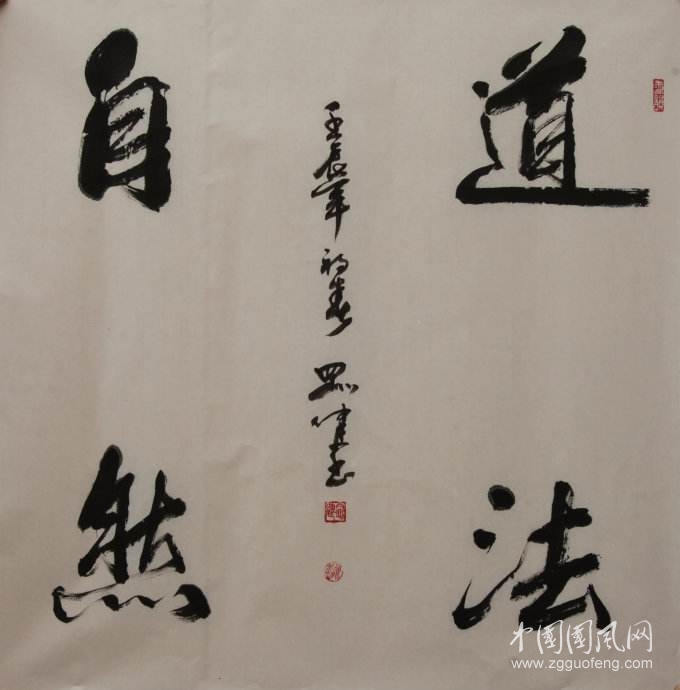 道法
自然
壬辰年初春 健书
中國國風网
www.zgguofeng.com